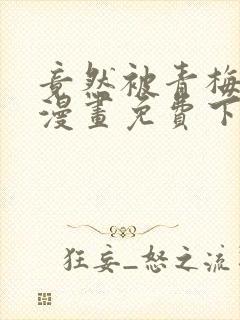 竟然被青梅
漫畫免費下
狂妄_怒之流